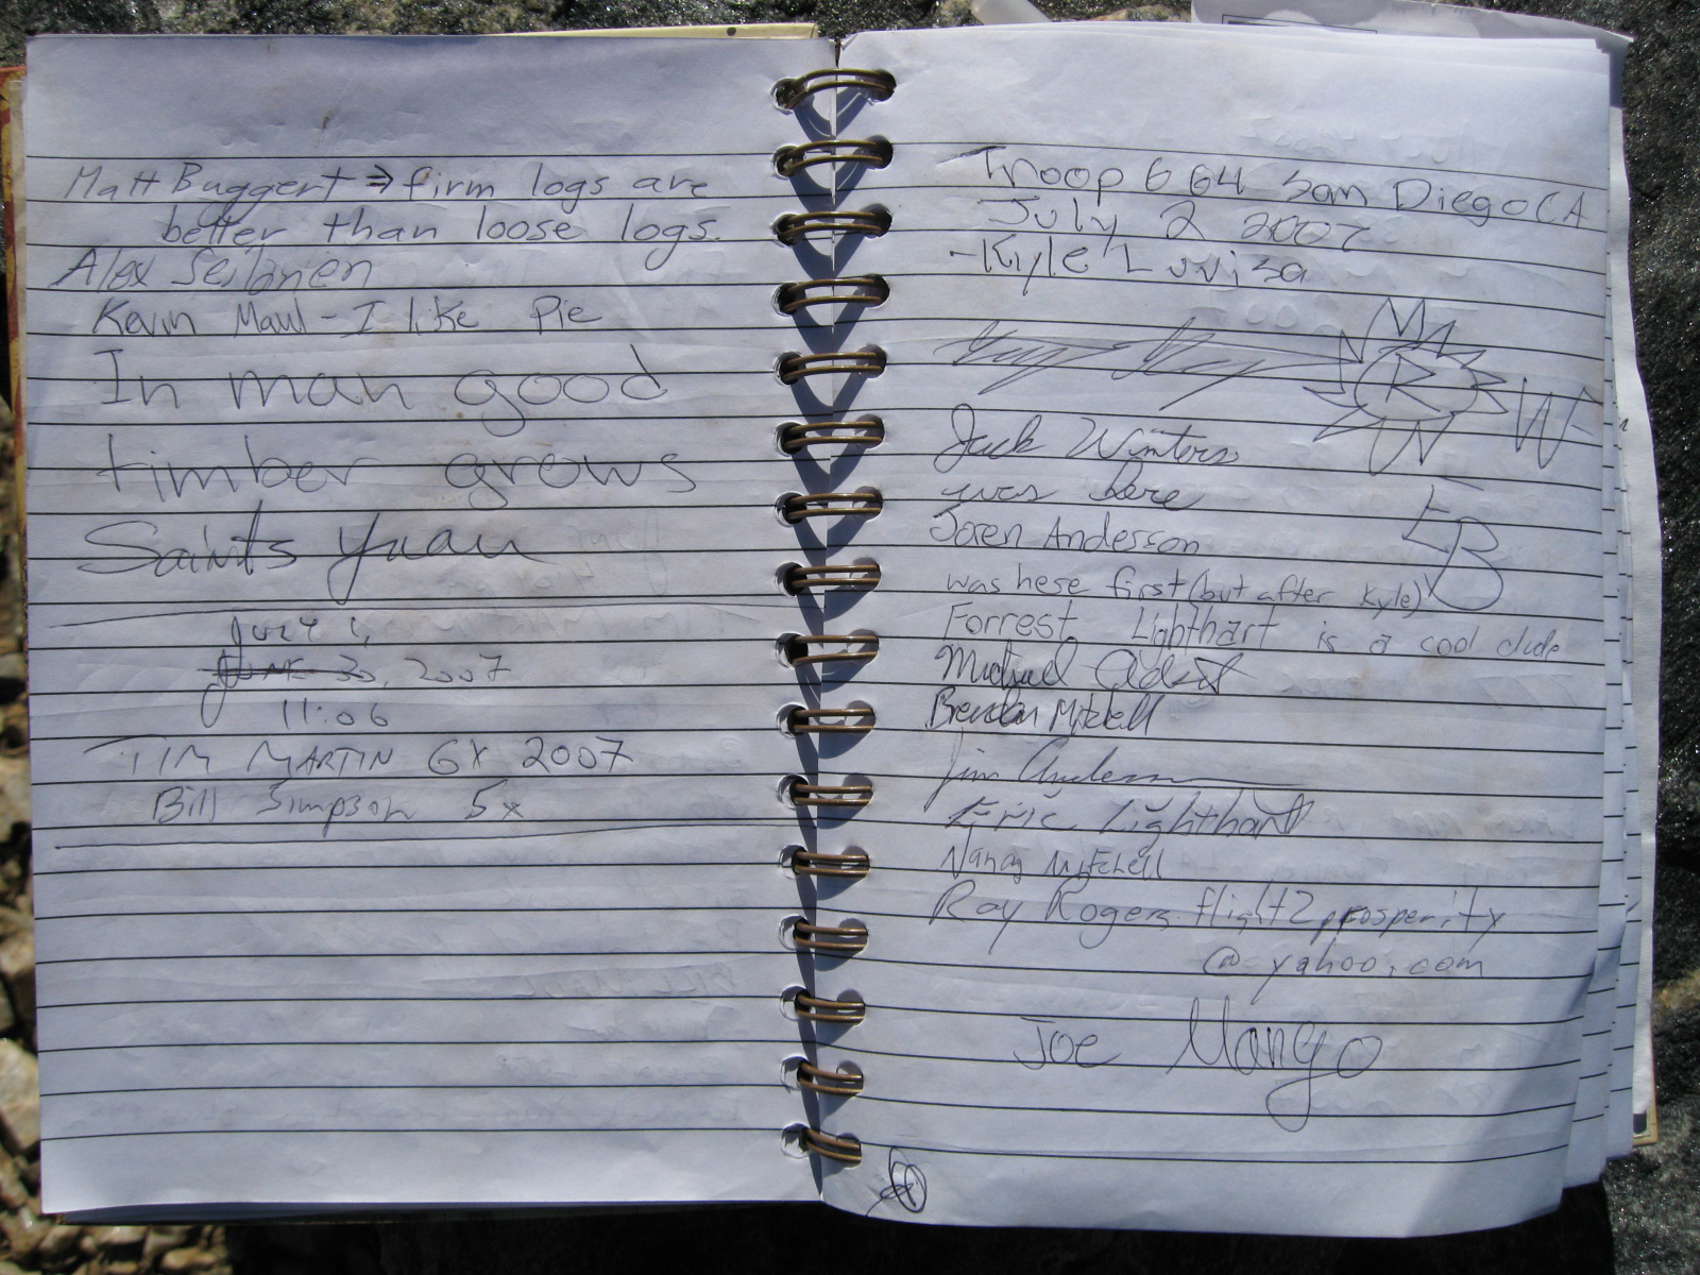 Matt Buggert → firm logs are
better than loose logs.
Alex Seilonen
Kevin Maul - I like Pie
In man good
timber grows
Saints Yuan
July 1,
2007
11:06
TIM MARTIN 6X 2007
Bill Simpson 5x
Troop 664 San Diego CA
July 2 2007
-Kyle
R
W
Jack Winters
was here
EB
Joren Andesson
was hese first (but after Kyle)
Forrest Lighthart is a cool dude
Michael
Brendan Mitchell
Jim Anderson
Eric Lighthart
Nancy Mitchell
Ray Rogers flight2prosperity
@yahoo.com
Joe Mango